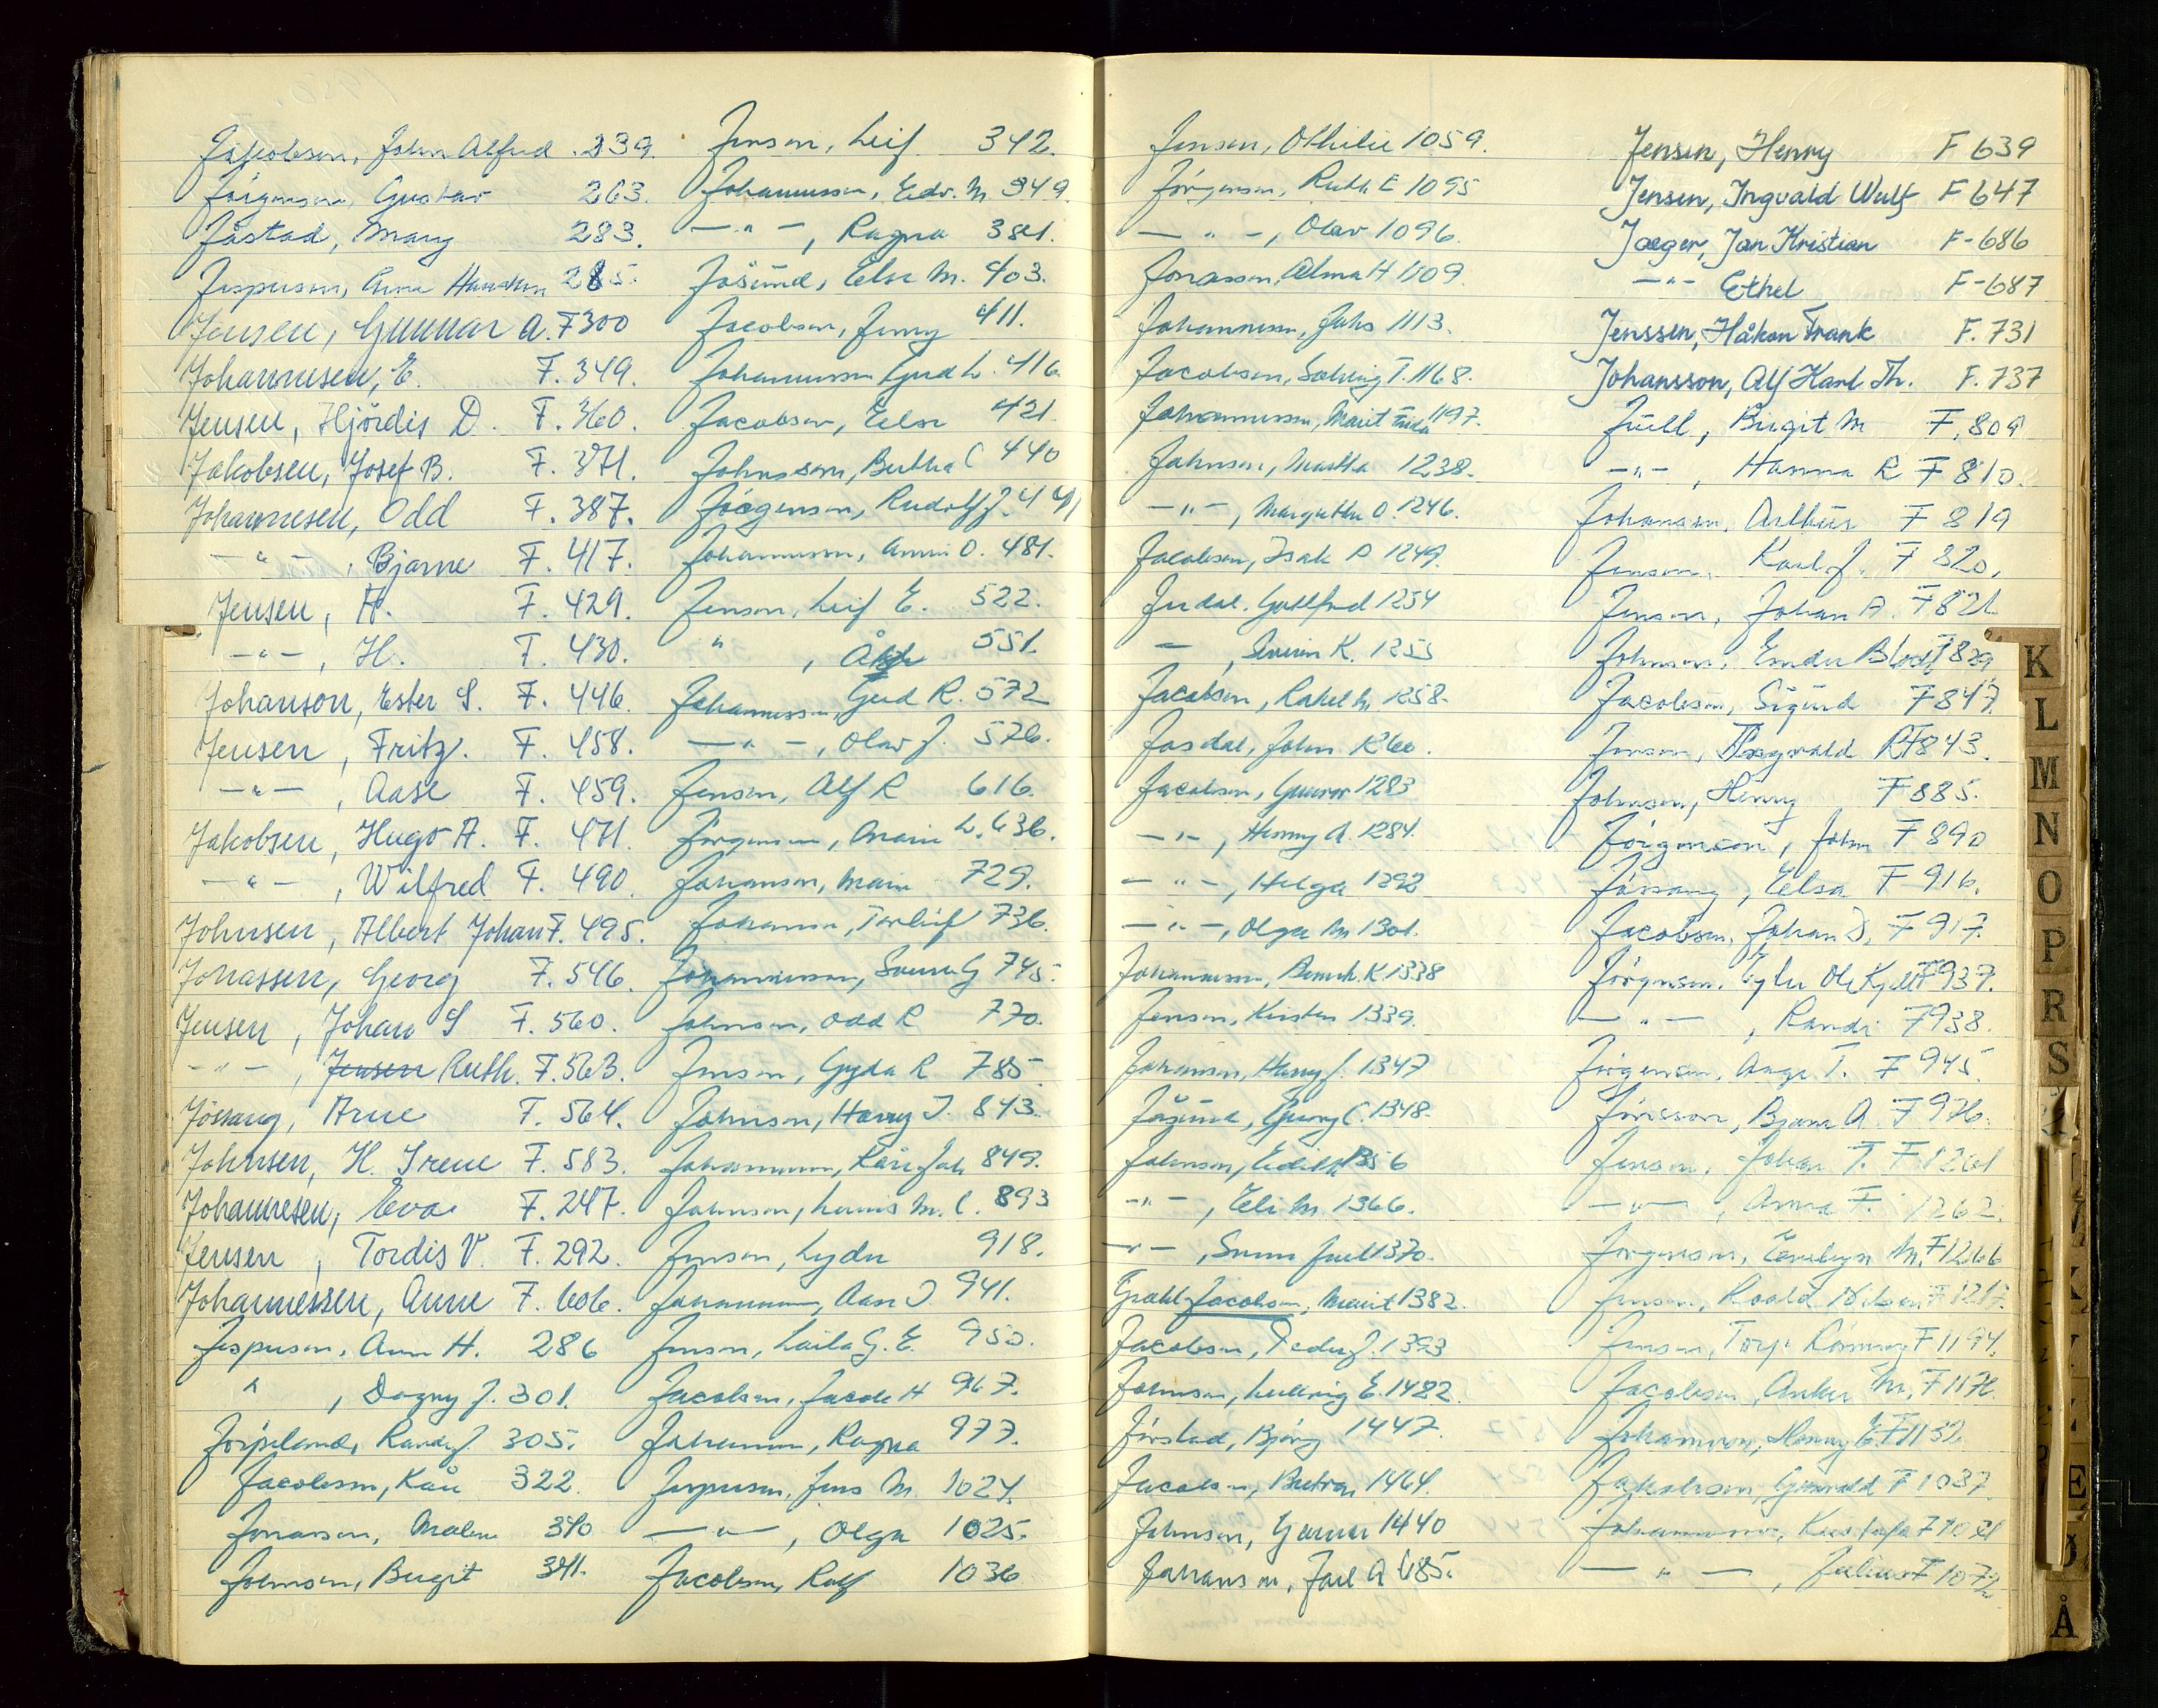 Jakobsen, John Alfred 239.
Jørgensen, Gustav 263.
Jåstad, Mary 283.
Jespersen, Anne 285.
Jensen, Gunnar A. F 300
Johannesen, E. F. 349.
Jensen, Hjördis D. F. 360.
Jakobsen, Josef B. F. 371.
Johannesen, Odd F. 387.
—"—, Bjarne F. 417.
Jensen, A. F. 429.
—"—, H. F. 430.
Johanson, Ester S. F. 446.
Jensen, Fritz. F. 458.
—"—, Aase F. 459.
Jakobsen, Hugo A. F. 471.
—"—, Wilfred F. 490.
Johnsen, Albert Johan F. 495.
Jonassen, Georg F. 546.
Jensen, Johan S F. 560.
—"—, Jensen Ruth. F. 563.
Jössang, Arne F. 564.
Johnsen, H. Irene F. 583.
Johannesen, Eva F. 247.
Jensen, Tordis V. F. 292.
Johannessen, Anne F. 606.
Jespersen, Ann H. 286
", Dagny J. 301.
Jörpeland, Randi J. 305.
Jacobsen, Kåre 322.
Jonassen, Malene 340
Johnsen, Birgit 341.
Jensen, Leif 342.
Johannessen, Edv. M 349.
—"—, Ragna 381.
Jåsund, Else M. 403.
Jacobsen, Jenny 411.
Johannessen Gerd L. 416.
Jacobsen, Else 421
Johnsson, Bertha C 440
Jörgensen, Rudolf J. 441
Johannessen, Anna O. 481.
Jensen, Leif E. 522.
", Åge 551.
Johannessen, Gerd R. 572
—"—, Olav J. 576.
Jensen, Alf R 616.
Jörgensen, Marie L. 636.
Johansen, Marie 729.
Johansen, Torleif 736.
Johannessen, Sverre G 745.
Johnsen, Odd R 770.
Jensen, Gyda R 785.
Johnsen, Harry J. 843.
Johannessen, Kåre Joh 849.
Johnsen, Lovis M. C. 893
Jensen, Lydia 918.
Johannessen, Aase J. 941.
Jensen, Laila G. E. 950.
Jacobsen, Jacob H 967.
Johannessen, Ragna 977.
Jespersen, Jens M. 1024.
—"—, Olga 1025.
Jacobsen, Rolf 1036
Jensen, Othilie 1059.
Jörgensen, Ruth E 1095
—"—, Olav 1096.
Jonassen, Alma H 1109.
Johannessen, Johs 1113.
Jacobsen, Solveig T. 1168.
Johannessen, Marit Frida 1197.
Johnsen, Martha 1238.
—"—, Margrethe O. 1246.
Jacobsen, Isak P 1249.
Jrdal, Gottfred 1254
—, Severin K. 1255
Jacobsen, Rakel M 1258.
Josdal, John 1260.
Jacobsen, Gunvor 1283
—"—, Henny A. 1284.
—"—, Helga 1292
—"—, Olga M 1301.
Johannessen, K 1338
Jensen, Kirsten 1339.
Johansen, Harry J. 1347
Jåsund, Georg C. 1348.
Johnsen, Edith 1356
—"—, Eli M. 1366.
—"—, Svenn Juell 1370.
Grahl-Jacobsen, Marit 1382.
Jacobsen, Peder J. 1393
Johnsen, Ludvig E. 1422.
Jörstad, Bjørg 1447.
Jacobsen, 1464.
Johnsen, Gunnar 1440
Johansen, Joel A 1185.
Jensen, Henry F 639
Jensen, Ingvald Wulf F 647
Jaeger, Jan Kristian F-686
—"— Ethel F-687
Jenssen, Håkon Frank F. 731
Johansson, Alf Karl. Th. F. 737
Juell, Birgit M F. 809
—"—, Hanna R F 810.
Johansen, Arthur F 819
Jensen, Karl J. F 820.
Jensen, Johan A. F 821
Johnsen, Endre F 829
Jacobsen, Sigurd F 847.
Jensen, Ragnvald R F 843.
Johnsen, Henry F 885.
Jörgensen, John F 890
Jössang, Elsa F 916.
Jacobsen, Johan D. F 917.
Jörgensen, Ole Kjell F 937.
—"—, Randi F 938.
Jörgensen, Aage T. F 945.
Jönsson, Bjarne A. F 976.
Jensen, Johan T. F 1261
—"—, Anna F. 1262.
Jörgensen, Evelyn M. F 1266
Jensen, Roald Nilsen F 1217.
Jensen, Torp F 1194.
Jacobsen, Anker M. F 1176.
Johannessen, Henny E. F 1132
Jakobsen, Gunvald F 1087.
Johannessen, F 1071
—"—, Julius F 1072
K
L
M
N
O
P
R
S
Å